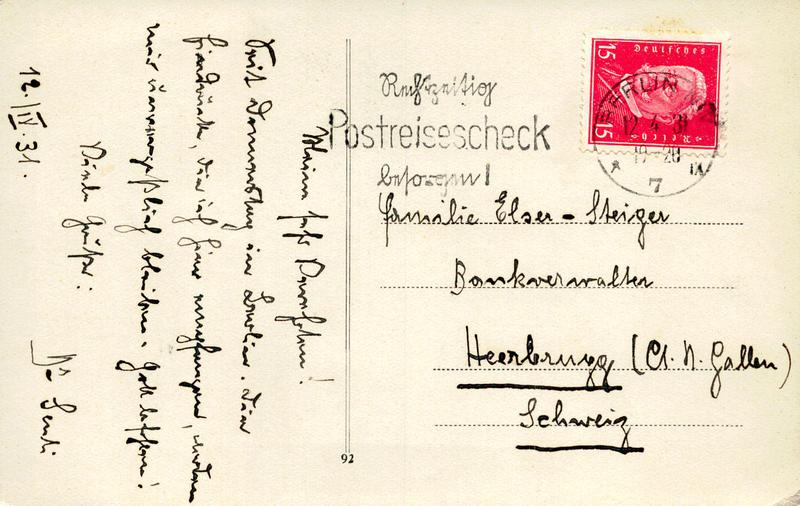 12./IV. 31.
Meine sehr Verehrten!
Seit Donnerstag in Berlin. Die
Eindrücke, die ich hier empfangen, werden
mir unvergeßlich bleiben.
Viele Grüße:
Rechtzeitig
Postreisescheck
besorgen!
Deutsches
Reich
15
15
BERLIN
12.4.31
19-20
7
Familie Elser-Steiger
Bankverwalter
Heerbrugg (Ct. St. Gallen)
Schweiz
92